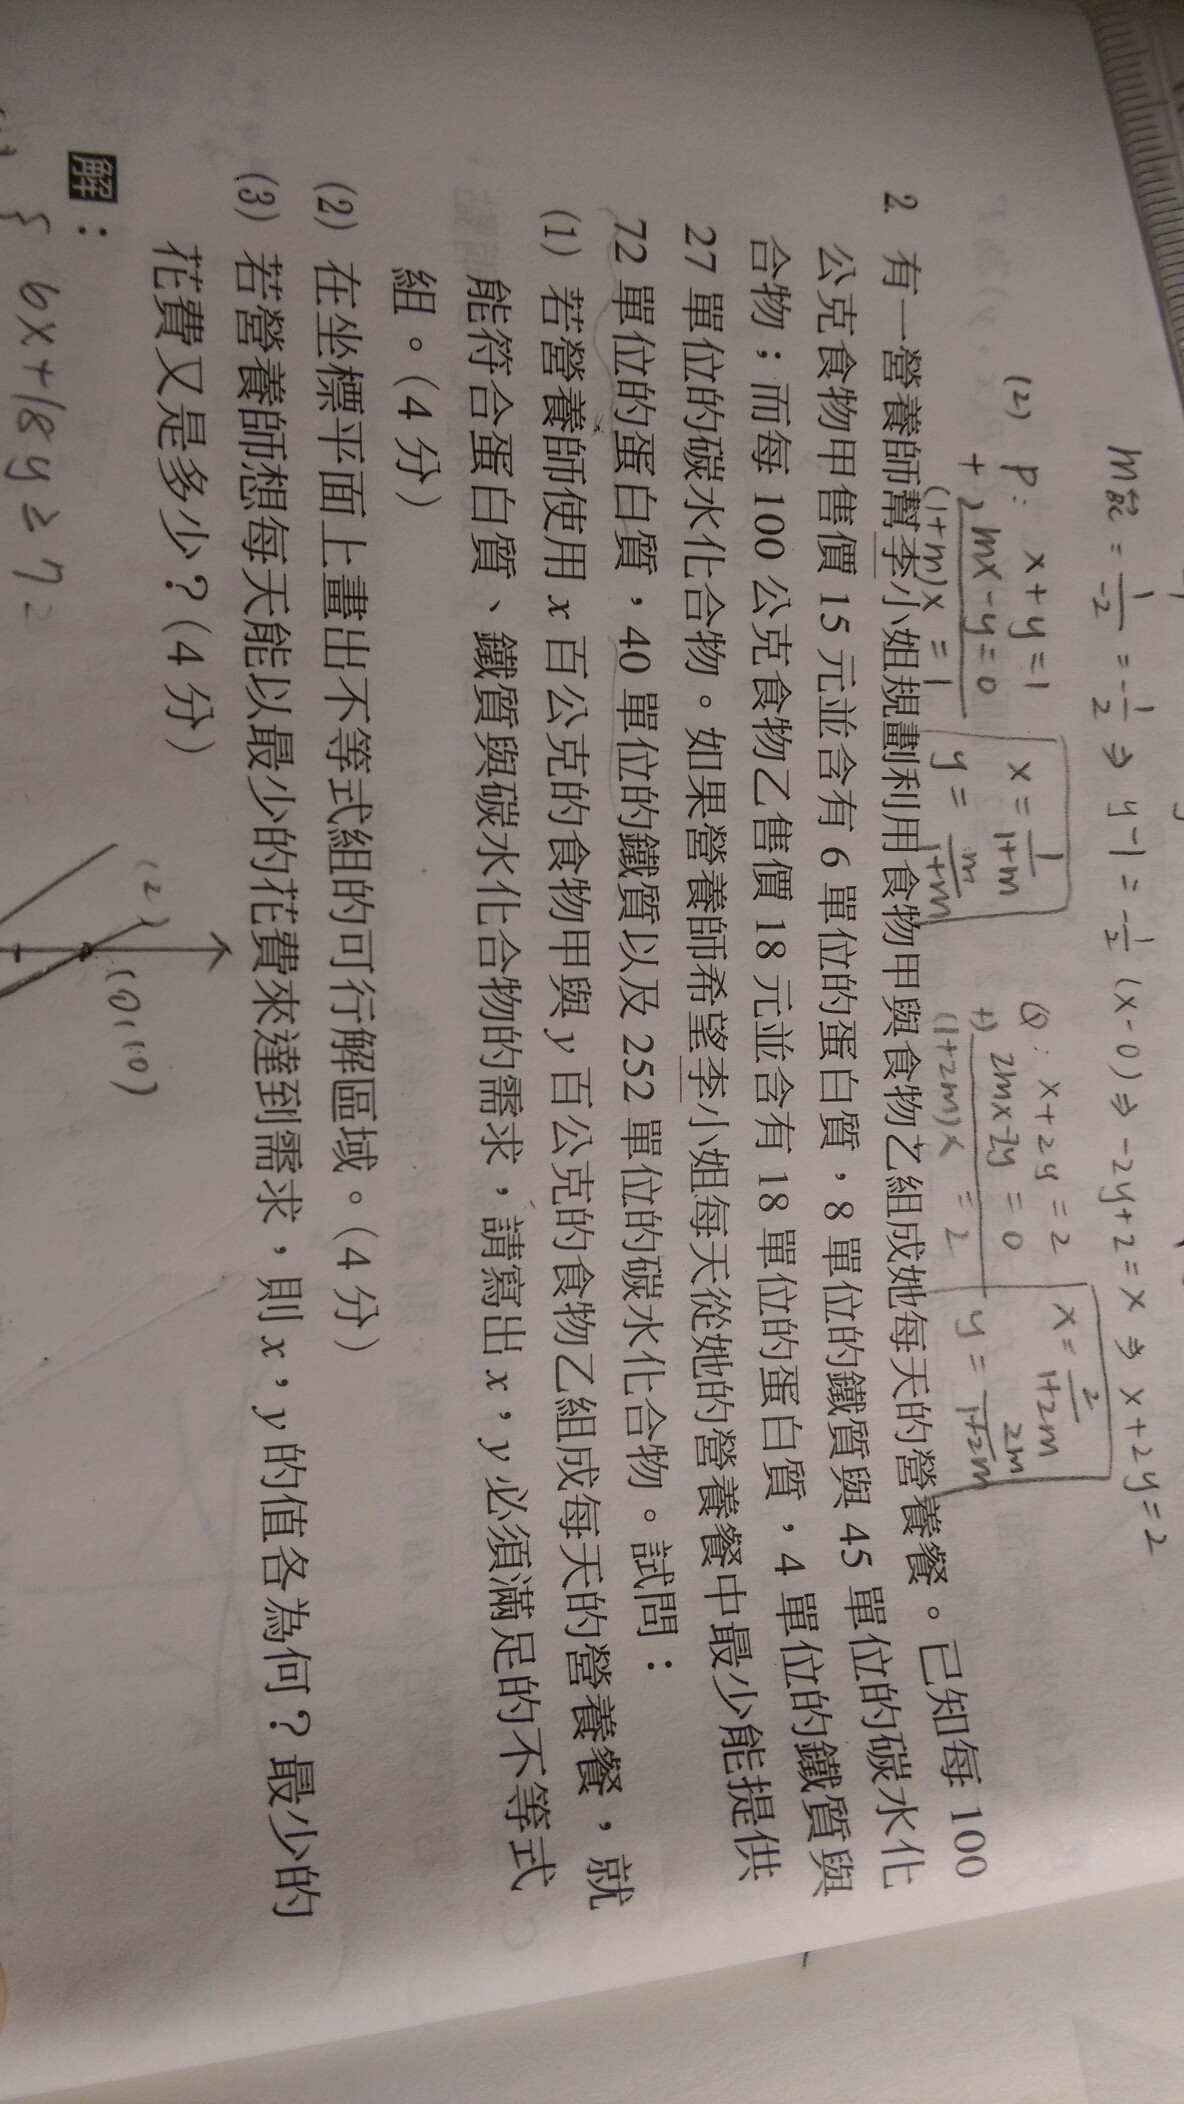 m BC = 1/-2 = -1/2 ⇒ y-1 = -1/2 (x-0) ⇒ -2y+2 = x ⇒ x+2y=2
(2) P: x+y=1 x = 1/1+m Q: x+2y=2 x = 2/1+2m
+) mx-y=0 y = m/1+m +) 2mx-2y=0 y = 2m/1+2m
(1+m)x = 1 (1+2m)x = 2
2. 有一營養師幫李小姐規劃利用食物甲與食物乙組成她每天的營養餐。已知每 100
公克食物甲售價 15 元並含有 6 單位的蛋白質,8 單位的鐵質與 45 單位的碳水化
合物;而每 100 公克食物乙售價 18 元並含有 18 單位的蛋白質,4 單位的鐵質與
27 單位的碳水化合物。如果營養師希望李小姐每天從她的營養餐中最少能提供
72 單位的蛋白質,40 單位的鐵質以及 252 單位的碳水化合物。試問:
(1) 若營養師使用 x 百公克的食物甲與 y 百公克的食物乙組成每天的營養餐,就
能符合蛋白質、鐵質與碳水化合物的需求,請寫出 x,y 必須滿足的不等式
組。(4 分)
(2) 在坐標平面上畫出不等式組的可行解區域。(4 分)
(3) 若營養師想每天能以最少的花費來達到需求,則 x,y 的值各為何?最少的
花費又是多少?(4 分)
解:
(2) (0,10)
6x+18y ≥ 72